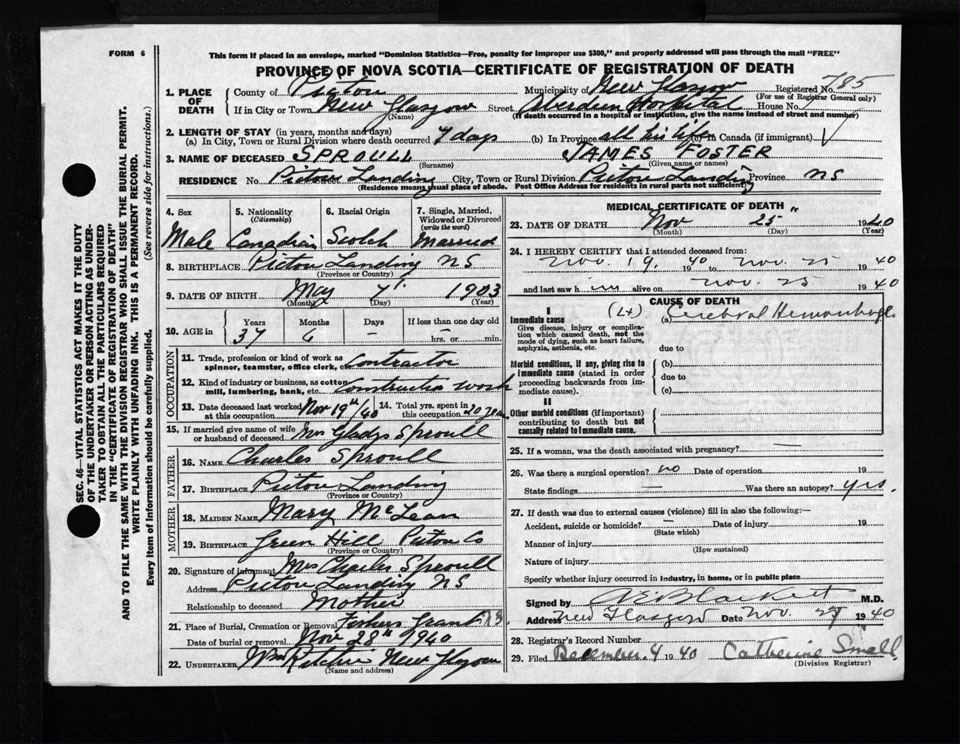 FORM 6
This form if placed in an envelope, marked "Dominion Statistics—Free, penalty for improper use $300," and properly addressed will pass through the mail "FREE"
PROVINCE OF NOVA SCOTIA—CERTIFICATE OF REGISTRATION OF DEATH
1. PLACE OF DEATH County of Pictou Municipality of New Glasgow Registered No. 785
(For use of Registrar General only)
If in City or Town New Glasgow Street Aberdeen Hospital House No.
(Name) (If death occurred in a hospital or institution, give the name instead of street and number)
2. LENGTH OF STAY (in years, months and days)
(a) In City, Town or Rural Division where death occurred 7 days (b) In Province all his life (c) In Canada (if immigrant)
3. NAME OF DECEASED SPROULL JAMES FOSTER
(Surname) (Given name or names)
RESIDENCE No. Pictou Landing City, Town or Rural Division Pictou Landing Province NS
(Residence means usual place of abode. Post Office Address for residents in rural parts not sufficient)
4. Sex 5. Nationality (Citizenship) 6. Racial Origin 7. Single, Married, Widowed or Divorced (write the word)
Male Canadian Scotch Married
8. BIRTHPLACE Pictou Landing NS
(Province or Country)
9. DATE OF BIRTH May 7 1903
(Month) (Day) (Year)
10. AGE in Years Months Days If less than one day old
37 6 hrs. or min.
OCCUPATION
11. Trade, profession or kind of work as spinner, teamster, office clerk, etc. Contractor
12. Kind of industry or business, as cotton mill, lumbering, bank, etc. Construction work
13. Date deceased last worked at this occupation Nov 19th/40 14. Total yrs. spent in this occupation 20 years
15. If married give name of wife or husband of deceased Mrs Gladys Sproull
FATHER
16. NAME Charles Sproull
17. BIRTHPLACE Pictou Landing
(Province or Country)
MOTHER
18. MAIDEN NAME Mary McLean
19. BIRTHPLACE Green Hill Pictou Co
(Province or Country)
20. Signature of informant Mrs Charles Sproull
Address Pictou Landing NS
Relationship to deceased Mother
21. Place of Burial, Cremation or Removal Fishers Grant NS
Date of burial or removal Nov 28th 1940
22. UNDERTAKER Wm Ritchie New Glasgow
(Name and address)
MEDICAL CERTIFICATE OF DEATH
23. DATE OF DEATH Nov 25" 1940
(Month) (Day) (Year)
24. I HEREBY CERTIFY that I attended deceased from:
Nov. 19. 1940 to Nov. 25 1940
and last saw him alive on Nov. 25 1940
CAUSE OF DEATH
I
Immediate cause (a) Cerebral Hemorrhage
Give disease, injury or complication which caused death, not the mode of dying, such as heart failure, asphyxia, asthenia, etc.
due to
Morbid conditions, if any, giving rise to immediate cause (stated in order proceeding backwards from immediate cause).
(b)
due to
(c)
II
Other morbid conditions (if important) contributing to death but not causally related to immediate cause.
25. If a woman, was the death associated with pregnancy? —
26. Was there a surgical operation? no Date of operation 19
State findings — Was there an autopsy? yes.
27. If death was due to external causes (violence) fill in also the following:—
Accident, suicide or homicide? — Date of injury 19
(State which)
Manner of injury
(How sustained)
Nature of injury
Specify whether injury occurred in industry, in home, or in public place
Signed by AE Blackett M.D.
Address New Glasgow Date Nov. 27 1940
28. Registrar's Record Number
29. Filed December 4 1940 Catherine Small
(Division Registrar)
SEC. 46—VITAL STATISTICS ACT MAKES IT THE DUTY
OF THE UNDERTAKER OR PERSON ACTING AS UNDER-
TAKER TO OBTAIN ALL THE PARTICULARS REQUIRED
IN THE "CERTIFICATE OF REGISTRATION OF DEATH"
AND TO FILE THE SAME WITH THE DIVISION REGISTRAR WHO SHALL ISSUE THE BURIAL PERMIT.
WRITE PLAINLY WITH UNFADING INK. THIS IS A PERMANENT RECORD.
Every item of information should be carefully supplied. (See reverse side for instructions.)